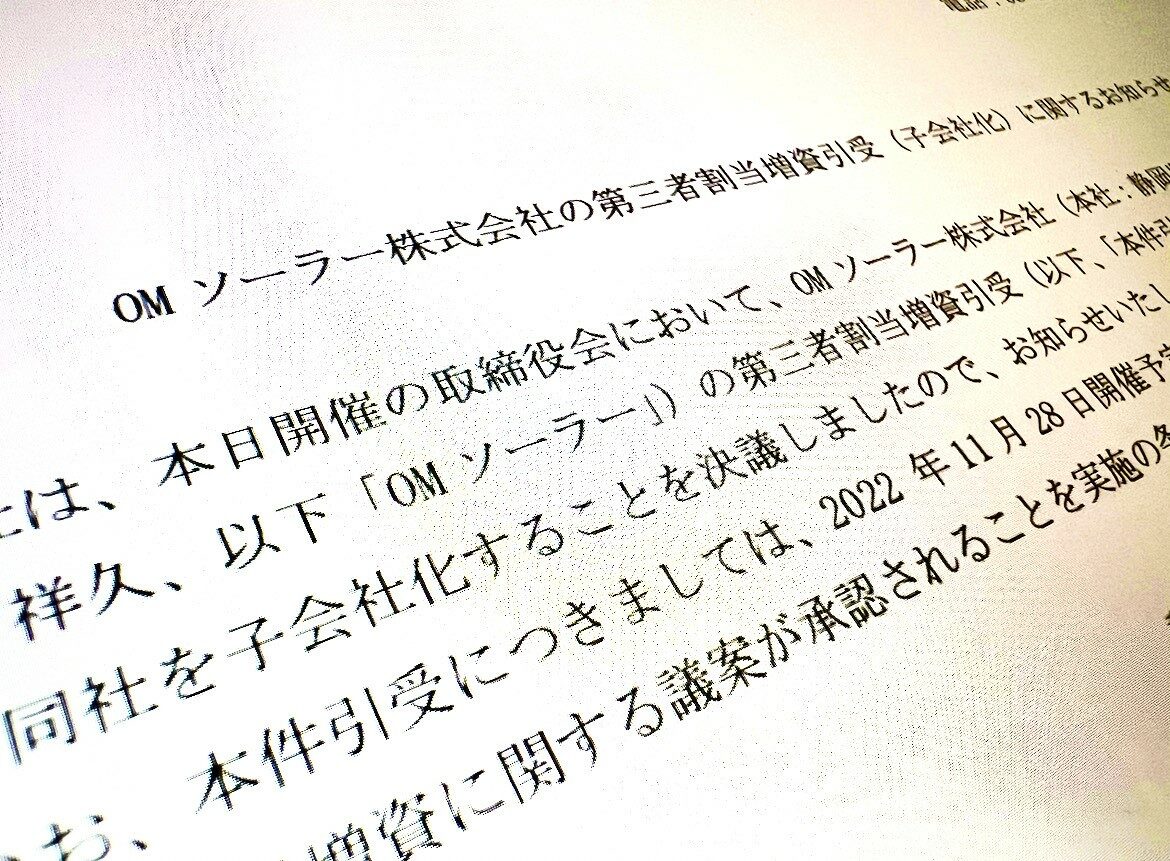 OM ソーラー株式会社の第三者割当増資引受（子会社化）に関するお知らせ
は、本日開催の取締役会において、OM ソーラー株式会社（本社：静岡
祥久、以下「OM ソーラー」）の第三者割当増資引受（以下、「本件引
同社を子会社化することを決議しましたので、お知らせいたし
お、本件引受につきましては、2022 年 11 月 28 日開催予定
増資に関する議案が承認されることを実施の条